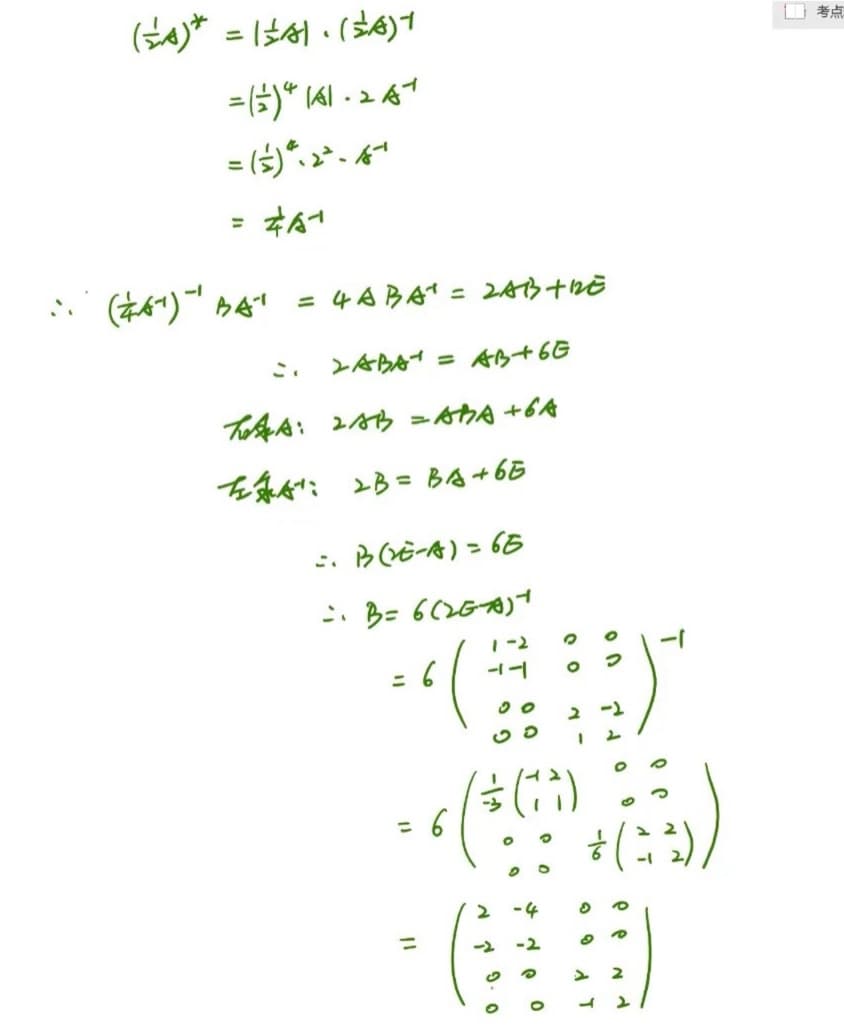 考点
(½A)* = |½A| · (½A)⁻¹
= (½)⁴ |A| · 2 A⁻¹
= (½)⁴ · 2² · A⁻¹
= ¼A⁻¹
∴ (¼A⁻¹)⁻¹ BA⁻¹ = 4ABA⁻¹ = 2AB+12E
∴ 2ABA⁻¹ = AB+6E
右乘A: 2AB = ABA+6A
左乘A⁻¹: 2B = BA+6E
∴ B(2E-A) = 6E
∴ B = 6(2E-A)⁻¹
= 6 (
1 -2 0 0
-1 -1 0 0
0 0 2 -2
0 0 1 2
)⁻¹
= 6 (
1/-3 (-1 2 0 0
1 1) 0 0
0 0 1/6 (2 2
0 0 -1 2)
)
= (
2 -4 0 0
-2 -2 0 0
0 0 2 2
0 0 -1 2
)